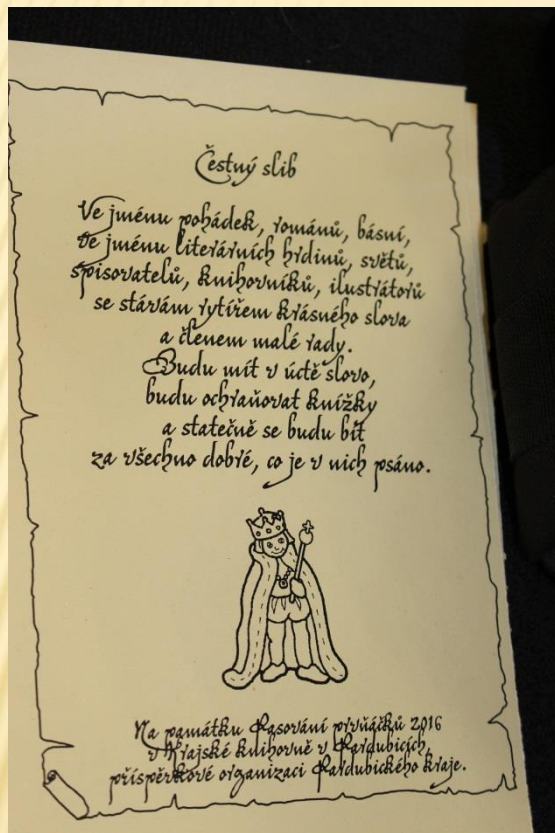 Čestný slib
Ve jménu pohádek, románů, básní,
ve jménu literárních hrdinů, světů,
spisovatelů, knihovníků, ilustrátorů
se stávám rytířem krásného slova
a členem malé rady.
Budu mít v úctě slovo,
budu ochraňovat knížky
a statečně se budu bít
za všechno dobré, co je v nich psáno.
Na památku Pasování prvňáčků 2016
v Krajské knihovně v Pardubicích,
příspěvkové organizaci Pardubického kraje.